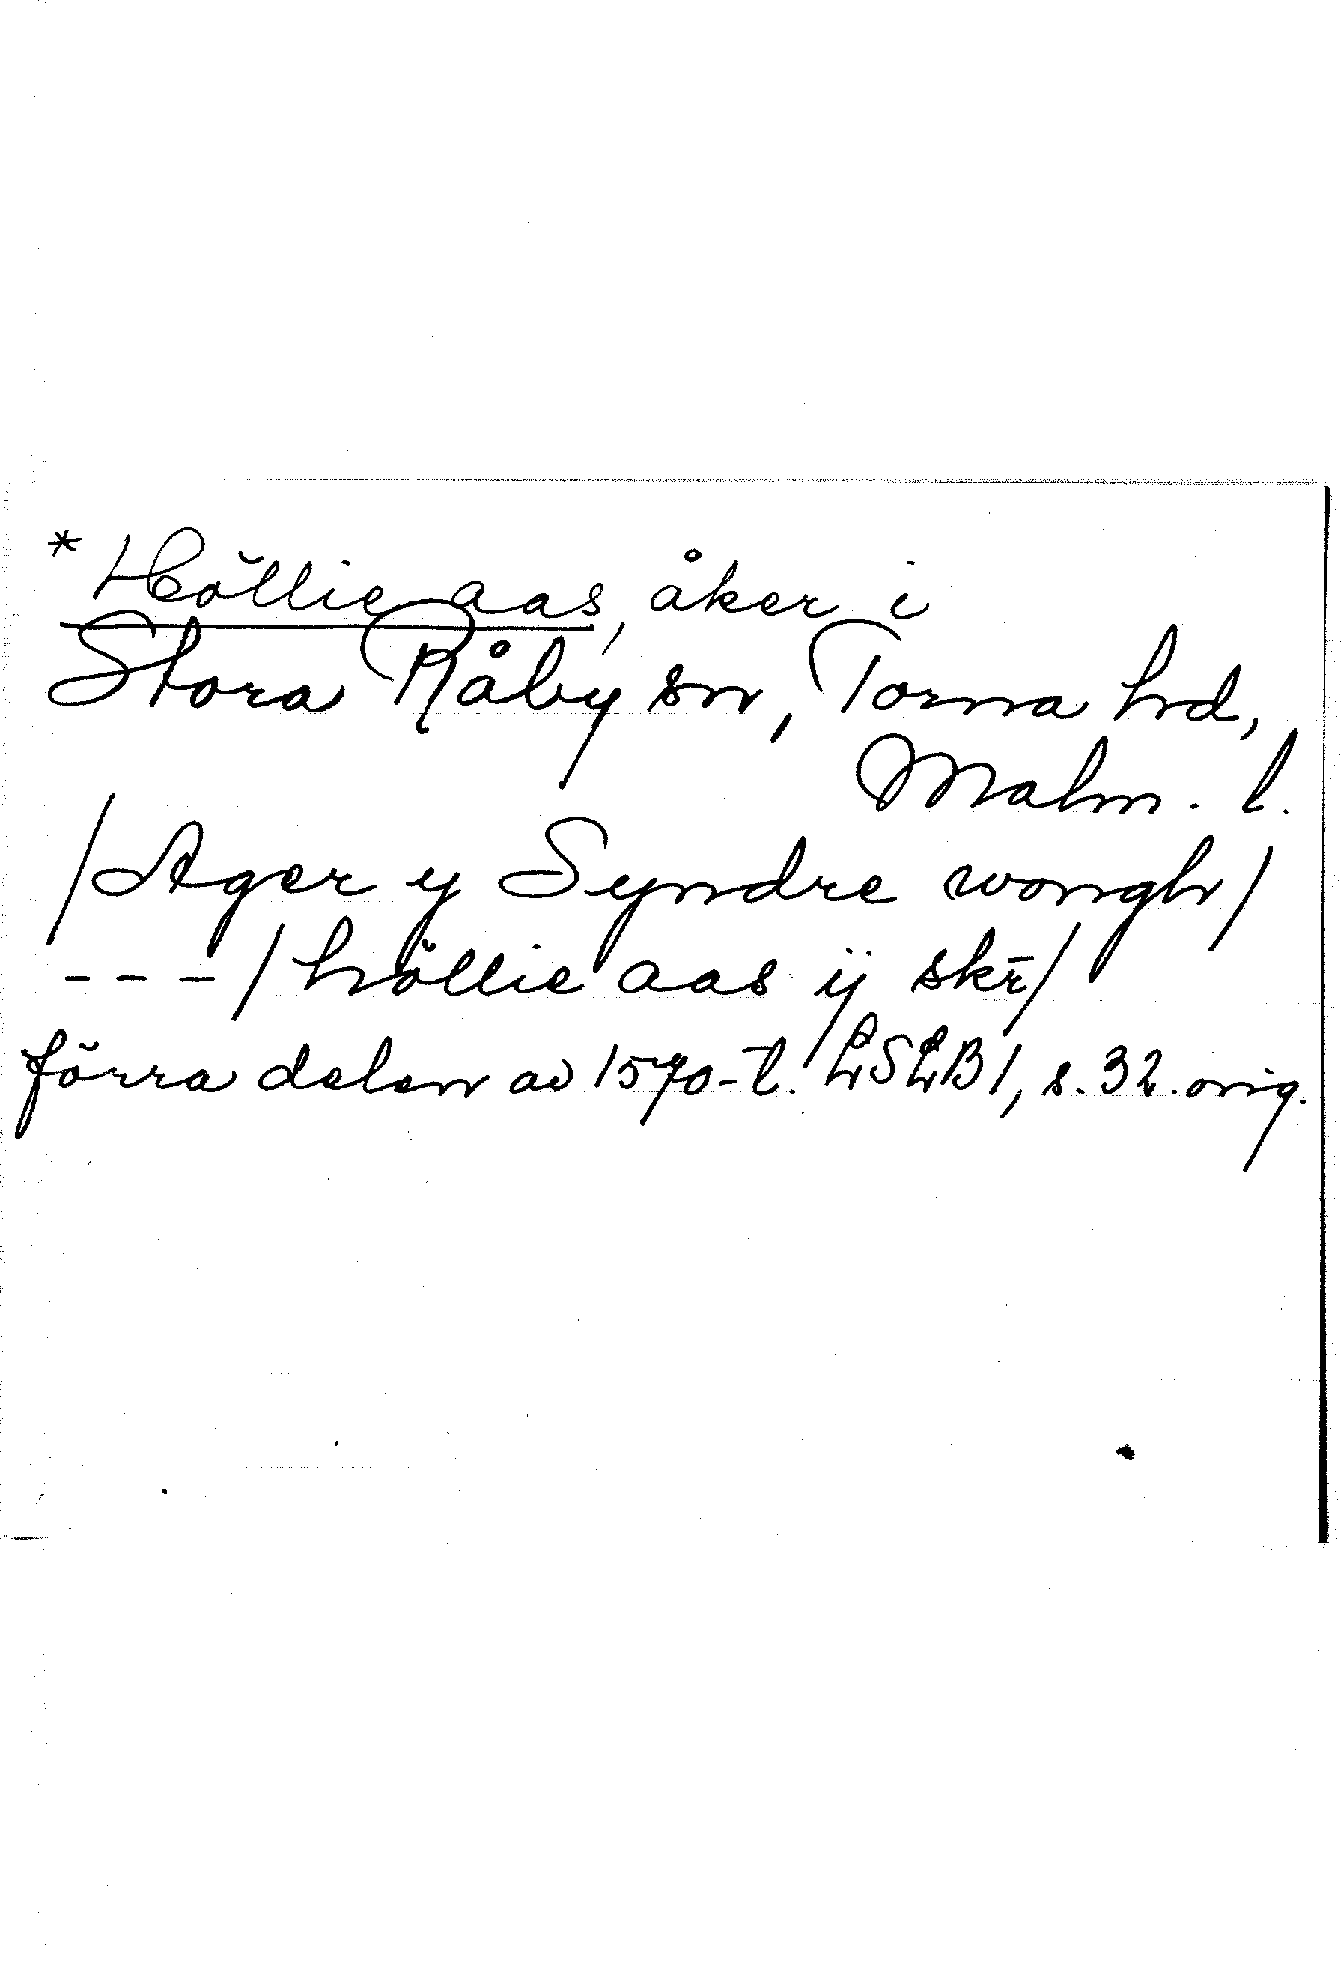 * Höllie aas, åker i
Stora Råby sn, Torna hd,
Malm. l.
/Ager y Syndre wongh/
- - - / höllie aas ij skr̄/
förra delen av 1570-t. LSLB 1, s. 32. orig.